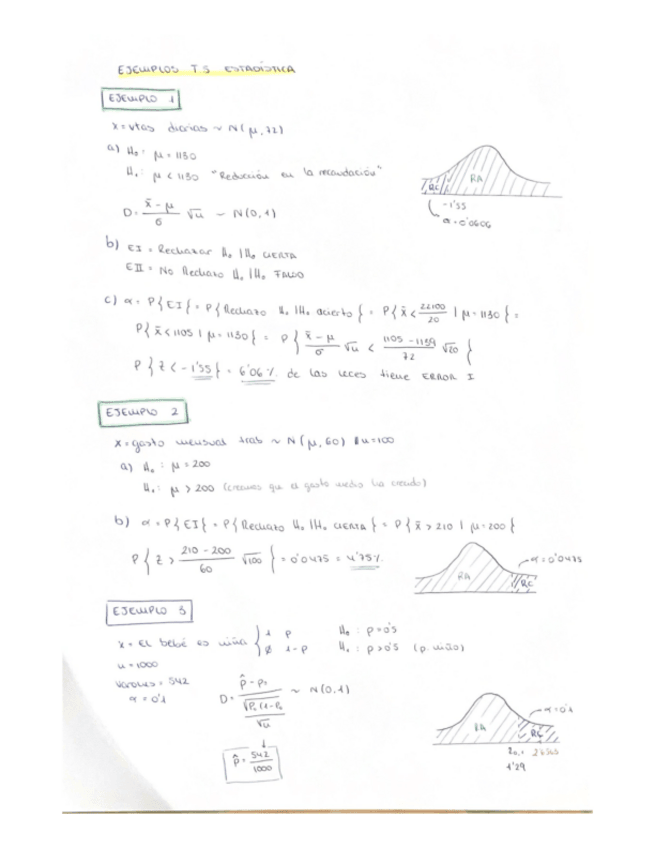 EJEMPLOS T.5 ESTADÍSTICA
EJEMPLO 1
x = vtas diarias ~ N(μ, 72)
a) H₀: μ = 1130
H₁: μ < 1130 "Reducción en la recaudación"
D = (x̄ - μ)/σ √n ~ N(0,1)
RC RA
-1'55
α = 0'0606
b) EI = Rechazar H₀ | H₀ CIERTA
EII = No Rechazo H₀ | H₀ FALSO
c) α = P{EI} = P{Rechazo H₀ | H₀ acierto} = P{x̄ < 22100/20 | μ = 1130} =
P{x̄ < 1105 | μ = 1130} = P{(x̄ - μ)/σ √n < (1105 - 1130)/72 √20}
P{Z < -1'55} = 6'06% de las veces tiene ERROR I
EJEMPLO 2
x = gasto mensual trab ~ N(μ, 60) n = 100
a) H₀: μ = 200
H₁: μ > 200 (creemos que el gasto medio ha crecido)
b) α = P{EI} = P{Rechazo H₀ | H₀ CIERTA} = P{x̄ > 210 | μ = 200}
P{Z > (210 - 200)/60 √100} = 0'0475 = 4'75%
α = 0'0475
RA RC
EJEMPLO 3
x = El bebé es niña { 1 p
∅ 1-p
H₀: p = 0'5
H₁: p > 0'5 (p. niño)
n = 1000
varones = 542
α = 0'1
D = (p̂ - p₀)/(√P₀(1-P₀)/√n) ~ N(0,1)
p̂ = 542/1000
α = 0'1
RA RC
1'29